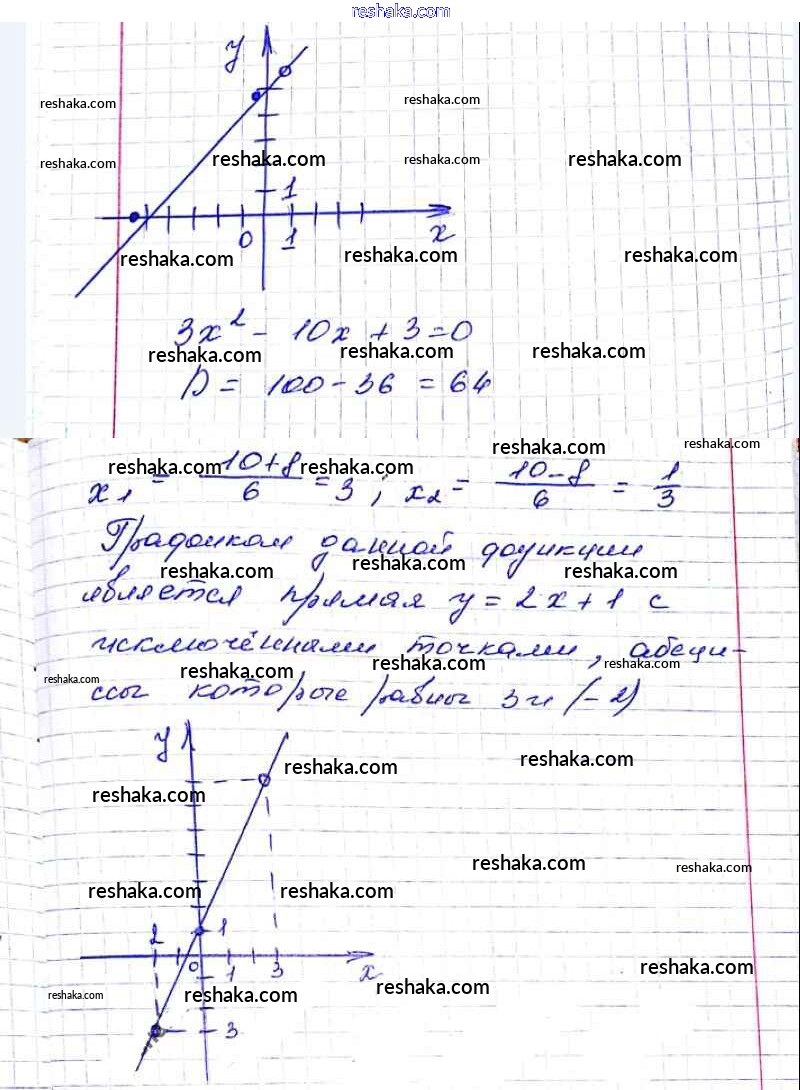 reshaka.com
y
reshaka.com reshaka.com
reshaka.com reshaka.com reshaka.com reshaka.com
1
0 1 x
reshaka.com reshaka.com reshaka.com
3x² - 10x + 3 = 0
reshaka.com reshaka.com reshaka.com
D = 100 - 36 = 64
reshaka.com reshaka.com
reshaka.com reshaka.com
x₁ = (10+8)/6 = 3; x₂ = (10-8)/6 = 1/3
Графиком данной функции
reshaka.com reshaka.com reshaka.com
является прямая y = 2x + 1 с
исключёнными точками, абсци-
reshaka.com reshaka.com reshaka.com reshaka.com
ссы которые равны 3 и (-2)
y
reshaka.com reshaka.com
reshaka.com
reshaka.com reshaka.com
reshaka.com reshaka.com
2 1
0 1 3 x
reshaka.com reshaka.com reshaka.com reshaka.com
- 3